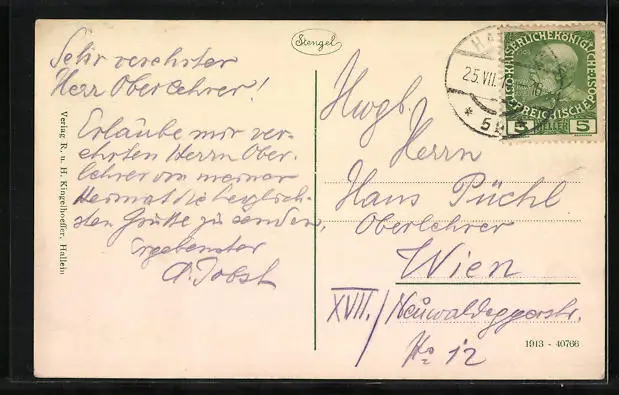 Stengel
Sehr verehrter
Herr Oberlehrer!
Erlaube mir ver-
ehrten Herrn Ober-
lehrer von meiner
Heimat die herzlich-
sten Grüße zu senden,
Ergebenster
A. Jobst
Verlag R. u. H. Kingelhoeffer, Hallein
HA
25.VII.
* 5
KAISERLICHE KÖNIGLICHE
ÖSTERREICHISCHE POST
5 HELLER 5
Hwgb.
Herrn
Hans Püchl
Oberlehrer
Wien
XVII./ Neuwaldeggerstr.
No 12
1913 - 40766